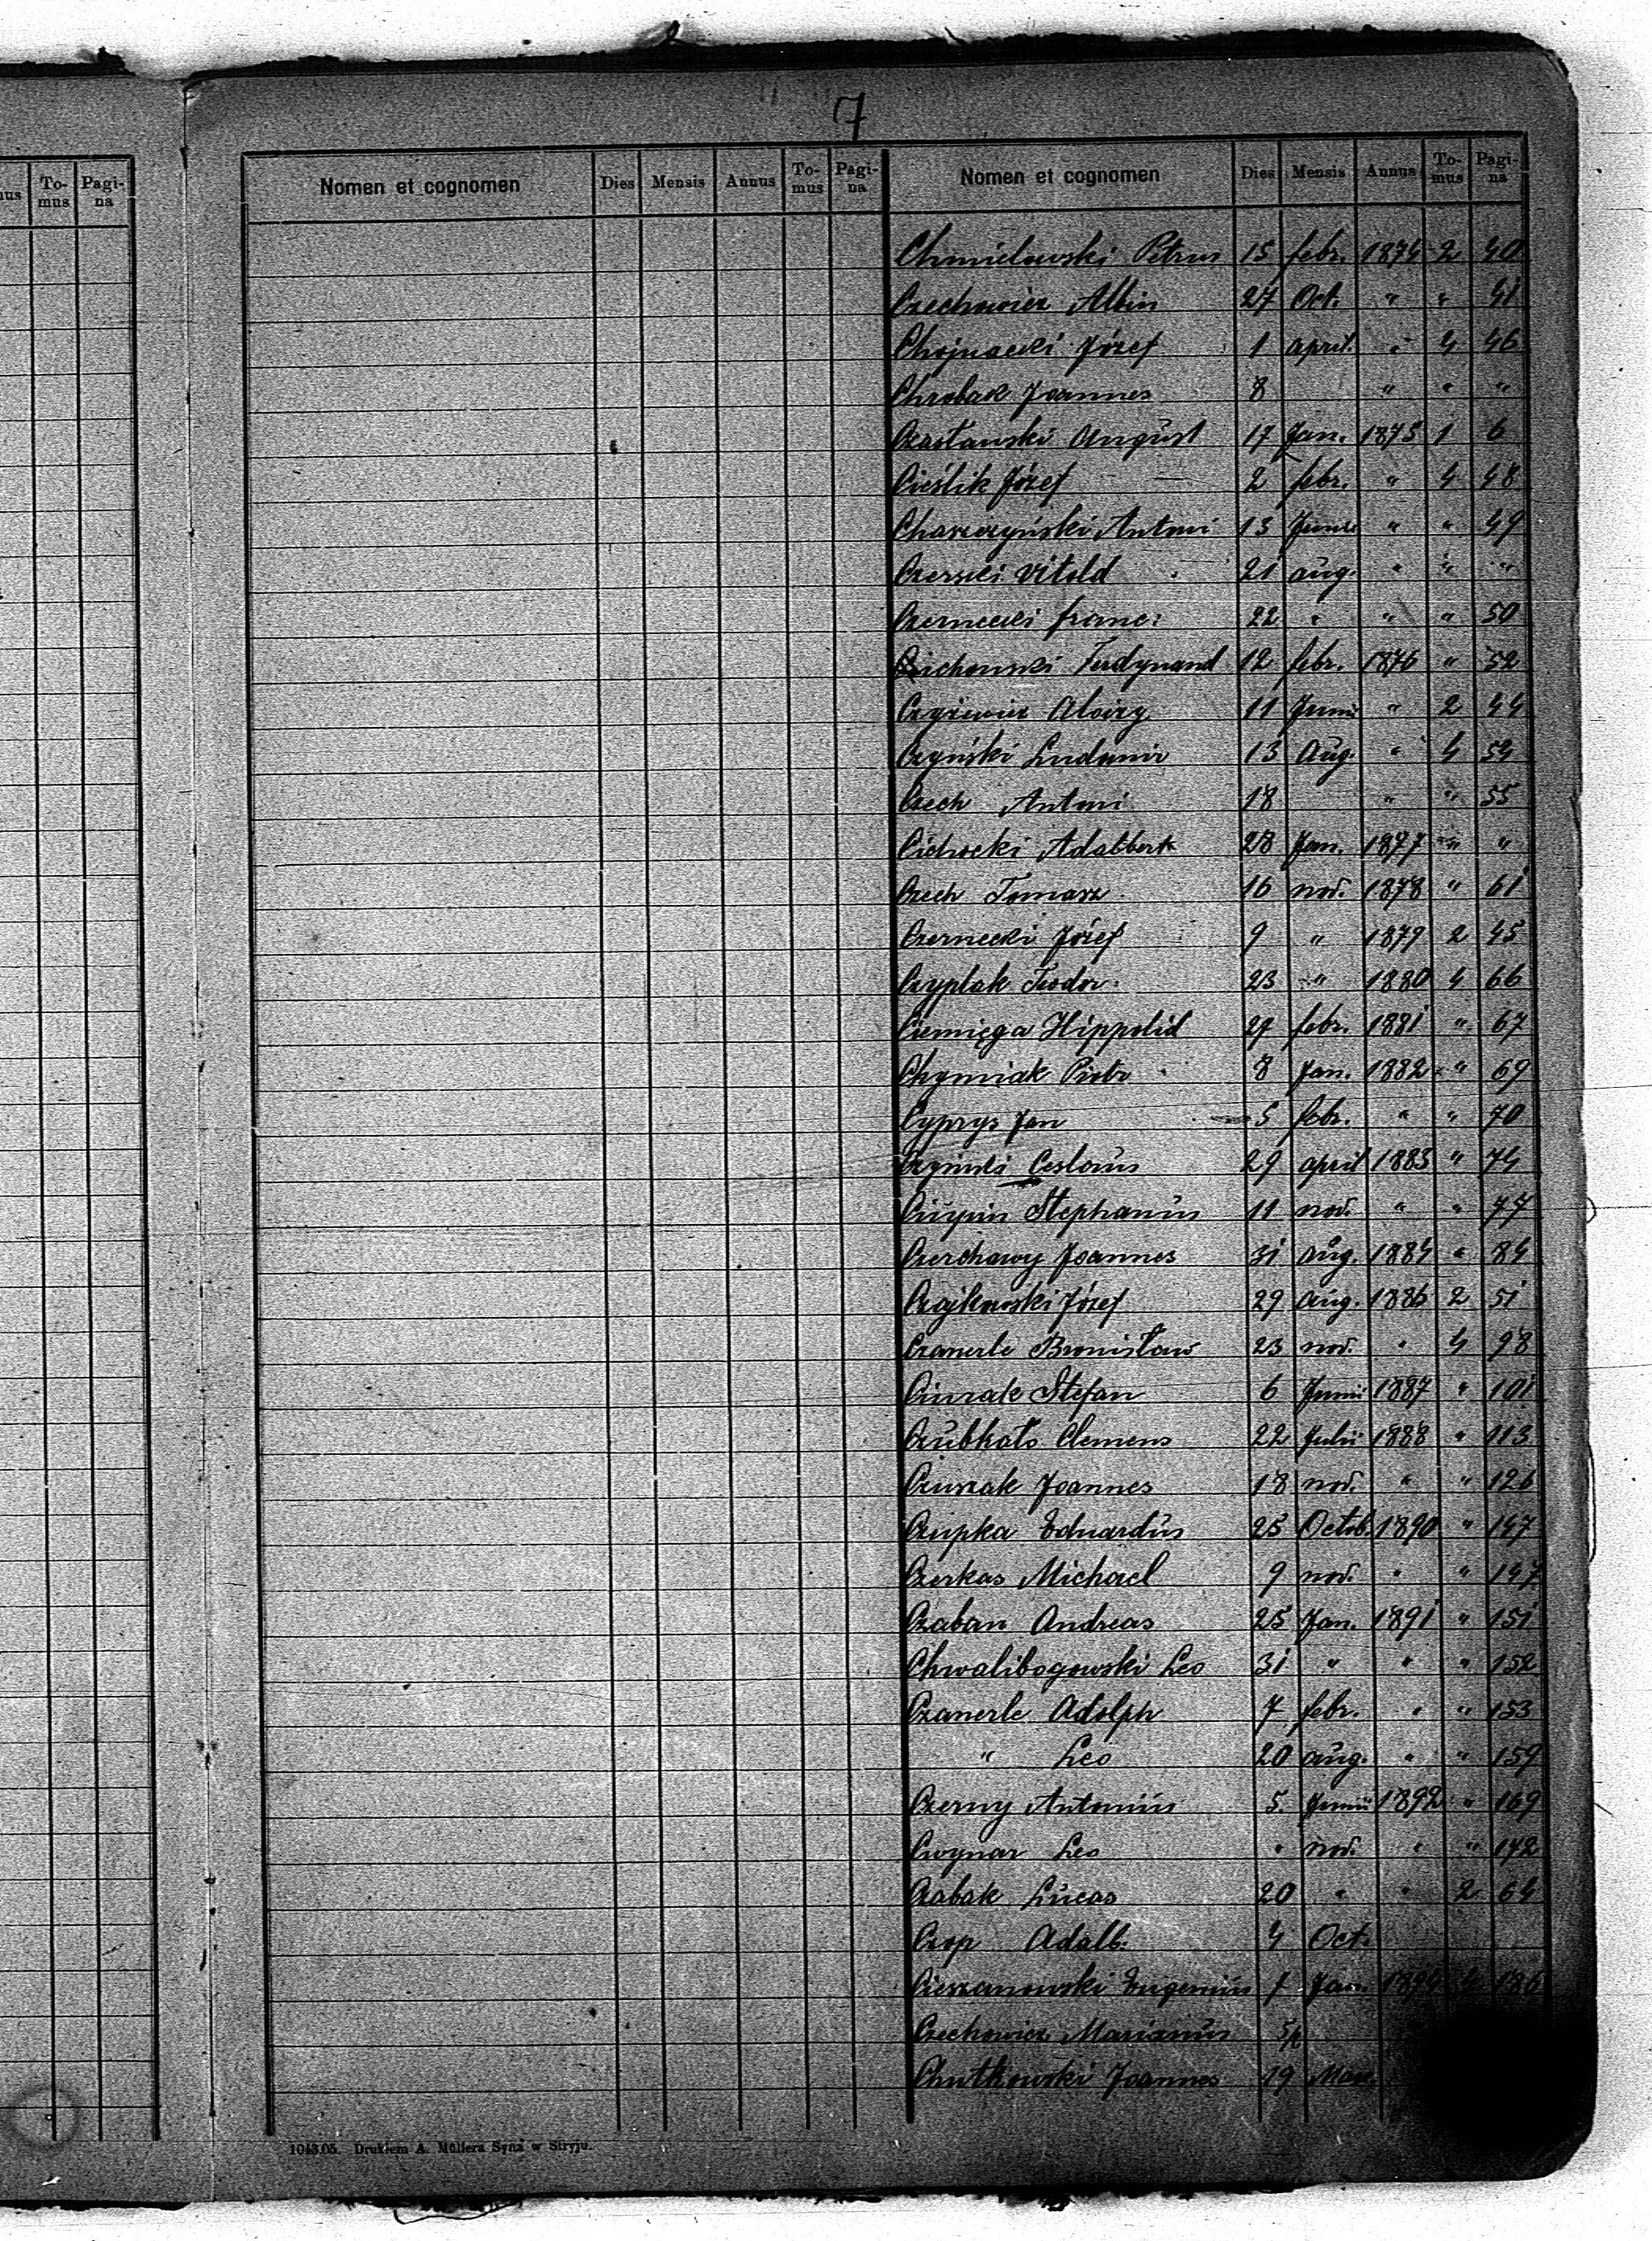 7
nus To-mus Pagi-na
Nomen et cognomen Dies Mensis Annus To-mus Pagi-na Nomen et cognomen Dies Mensis Annus To-mus Pagi-na
Chmielowski Petrus 15 febr. 1874 2 40
Czechowicz Albin 27 Oct. " " 41
Chojnacki Józef 1 april. " 4 46
Chrobak Joannes 8 " " "
Czasławski August 17 Jan. 1875 1 6
Cieślik Józef 2 febr. " 4 48
Charzyński Antoni 13 Junii " " 49
Czerski Vitold 21 aug. " " "
Czernecki franc: 22 " " " 50
Cichowski Ferdynand 12 febr. 1876 " 52
Czyżewicz Aloizy 11 Junii " 2 44
Czyński Ludomir 13 Aug. " 4 54
Czech Antoni 18 " " 55
Cichocki Adalbert 28 Jan. 1877 " "
Czech Tomasz 16 nov. 1878 " 61
Czernecki Józef 9 " 1879 2 45
Czyplak Teodor 23 " 1880 4 66
Ciemięga Hippolid 27 febr. 1881 " 67
Chymiak Piotr 8 Jan. 1882 " 69
Cyprys Jan 5 febr. " " 70
Czyński Ceslaus 29 april 1883 " 74
Stephanus 11 nov. " " 77
Czerchawy Joannes 31 aug. 1884 " 84
Czajkowski Józef 29 aug. 1886 2 51
Czanerle Bronisław 23 nov. " 4 98
Ciurak Stefan 6 Junii 1887 " 101
Clemens 22 Julii 1888 " 113
Joannes 18 nov. " " 126
Czupka Eduardus 25 Octob. 1890 " 147
Czerkas Michael 9 nov. " " 147
Czaban Andreas 25 Jan. 1891 " 151
Chwalibogowski Leo 31 " " " 152
Czanerle Adolph 7 febr. " " 153
" Leo 20 aug. " " 159
Czerny Antonius 5. Junii 1892 " 169
Cwynar Leo " nov. " " 172
Czabak Lucas 20 " " 2 64
Czop Adalb. 4 Oct.
Cieszanowski Eugenius 1 Jan. 1894 4 186
Czechowicz Marianus 5/2
Chutkowski Joannes 19 Mar.
1043.05. Drukiem A. Müllera Syna w Stryju.